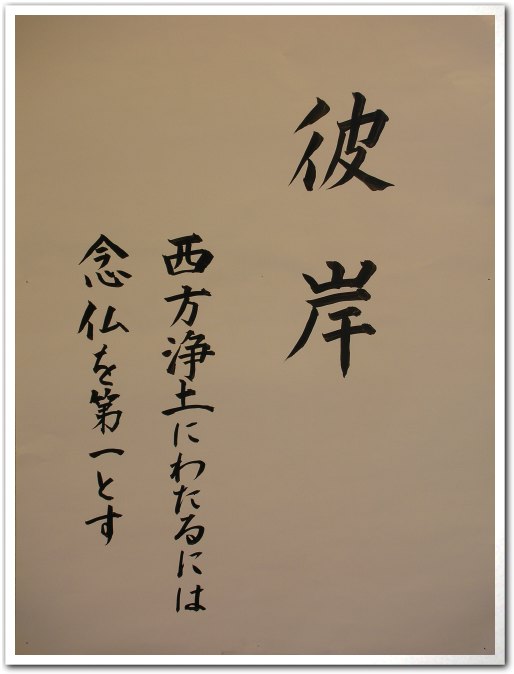 彼岸
西方浄土にわたるには
念仏を第一とす